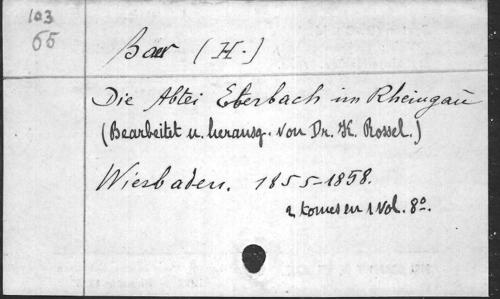 103
65
Baer (H.)
Die Abtei Eberbach im Rheingau
(Bearbeitet u. herausg. von Dr. K. Rossel.)
Wiesbaden. 1855-1858.
2 tomes en 1 Vol. 8º.